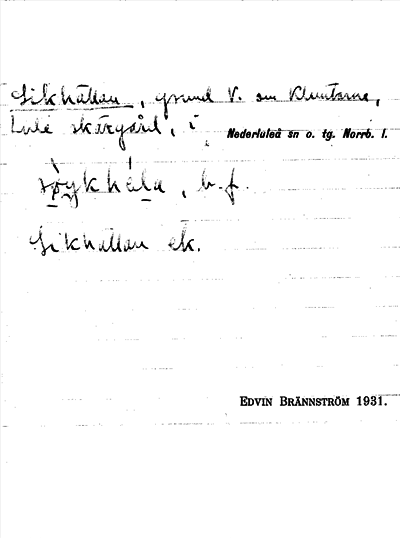 Sikhällan, grund V. om Kluntarna,
Lule skärgård, i Nederluleå sn o. tg. Norrb. l.
b. f.
Sikhällan ek.
EDVIN BRÄNNSTRÖM 1931.